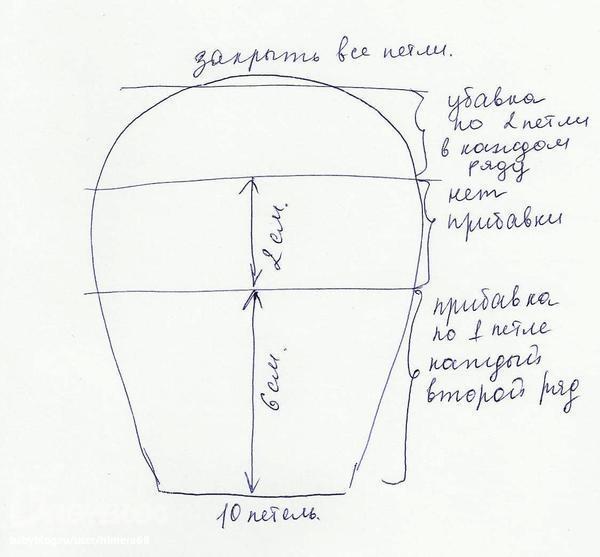 закрыть все петли.
убавка
по 2 петли
в каждом
ряду
нет
прибавки
2 см.
прибавка
по 1 петле
каждый
второй ряд
6 см.
10 петель.
babyblog.ru/user/himera68